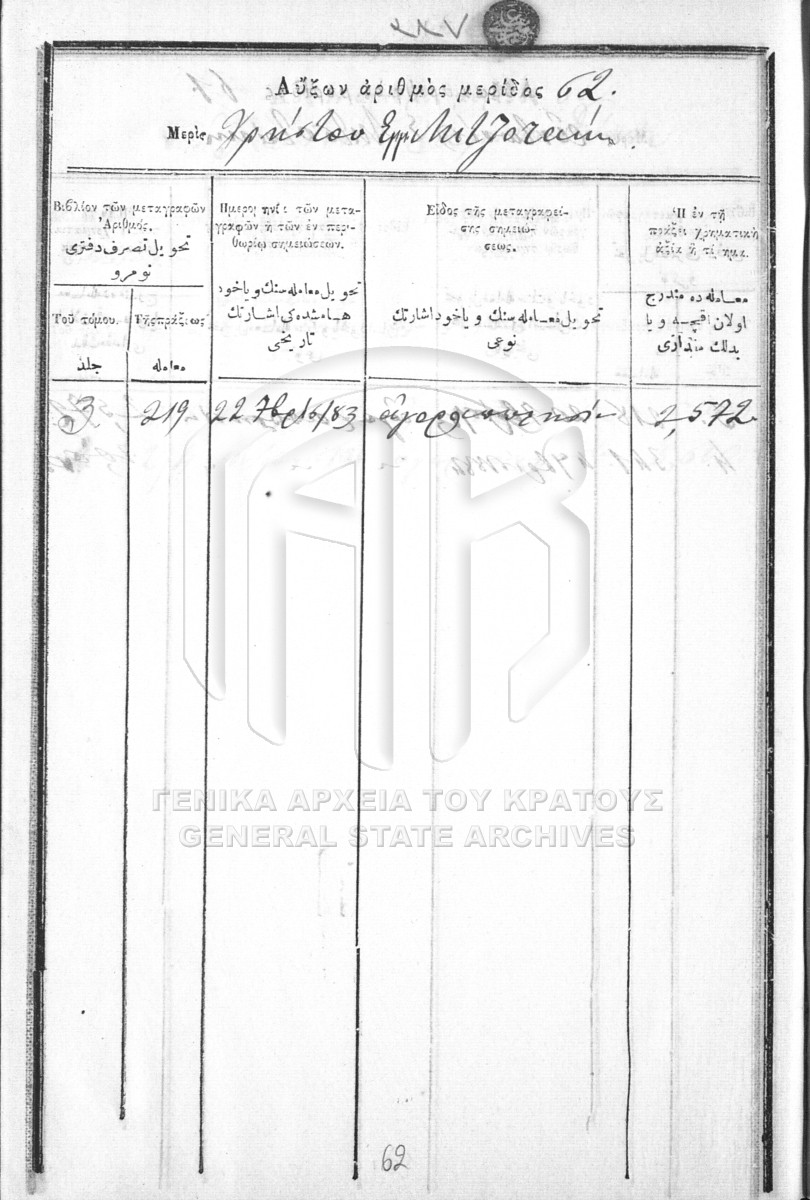 Αὔξων ἀριθμὸς μερίδος 62.
Μερὶς Χρήστου
Βιβλίον τῶν μεταγραφῶν
Ἀριθμός.
تحويل تصرف دفترى
نومرو
Ἡμερομηνία τῶν μετα-
γραφῶν ἢ τῶν ἐν περι-
θωρίῳ σημειώσεων.
تحويل معامله سنك و ياخود
هامشده كى اشارتك
تاريخى
Εἶδος τῆς μεταγραφεί-
σης σημειώ-
σεως.
تحويل معامله سنك و ياخود اشارتك
نوعى
Ἡ ἐν τῇ
πράξει χρηματικὴ
ἀξία ἢ τίμημα.
معامله ده مندرج
اولان اقچه و يا
بدلك مقدارى
Τοῦ τόμου.
جلد
Τῆς πράξεως
معامله
3 219 22 7βρίου/83 ἀγοραπωλησία 2,572
ΓΕΝΙΚΑ ΑΡΧΕΙΑ ΤΟΥ ΚΡΑΤΟΥΣ
GENERAL STATE ARCHIVES
62